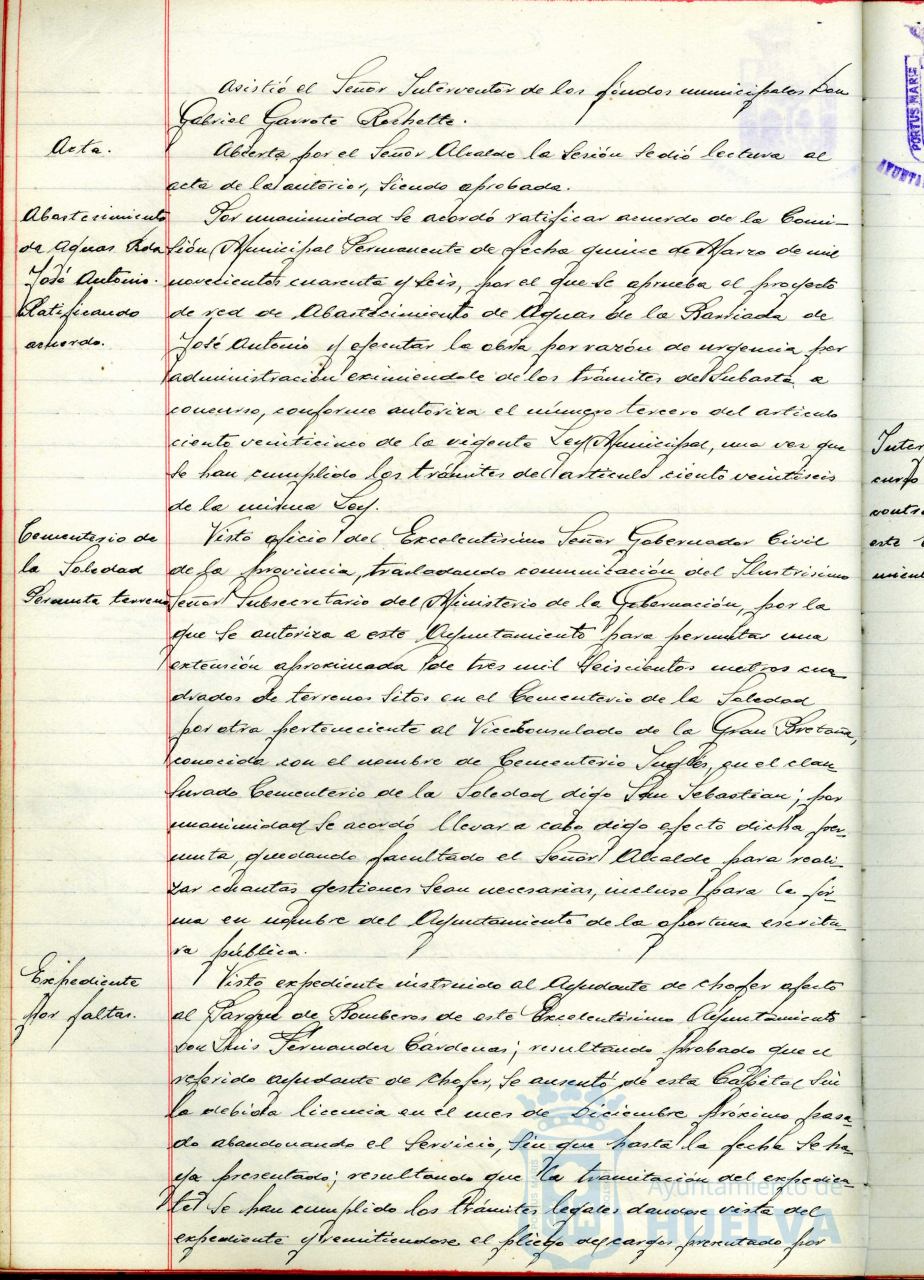 Asistió el Señor Interventor de los fondos municipales Don
Gabriel Garrote Rochette.
Acta.
Abierta por el Señor Alcalde la Sesión se dió lectura al
acta de la anterior, siendo aprobada.
Abastesimiento
de Aguas Bda
José Antonio.
Ratificando
acuerdo.
Por unanimidad se acordó ratificar acuerdo de la Comi-
sión Municipal Permanente de fecha quince de Marzo de mil
novecientos cuarenta y seis, por el que se aprueba el proyecto
de red de Abastecimiento de Aguas de la Barriada de
José Antonio y ejecutar la obra por razón de urgencia por
administración eximiendole de los trámites de Subasta o
concurso, conforme autoriza el número tercero del artículo
ciento veinticinco de la vigente Ley Municipal, una vez que
se han cumplido los trámites del artículo ciento veintiseis
de la misma Ley.
Cementerio de
la Soledad
Permuta terreno
Visto oficio del Excelentísimo Señor Gobernador Civil
de la provincia, trasladando comunicación del Ilustrísimo
Señor Subsecretario del Ministerio de la Gobernación, por la
que se autoriza a este Ayuntamiento para permutar una
extensión aproximada de tres mil seiscientos metros cua-
drados de terrenos sitos en el Cementerio de la Soledad
por otra perteneciente al Viceconsulado de la Gran Bretaña,
conocida con el nombre de Cementerio Inglés, en el clau-
surado Cementerio de la Soledad digo San Sebastian; por
unanimidad se acordó llevar a cabo digo efecto dicha per-
muta, quedando facultado el Señor Alcalde para reali-
zar cuantas gestiones sean necesarias, incluso para la fir-
ma en nombre del Ayuntamiento de la oportuna escritu-
ra pública.
Expediente
por faltas.
Visto expediente instruido al Ayudante de chofer afecto
al Parque de Bomberos de este Excelentísimo Ayuntamiento
Don Luis Fernandez Cárdenas; resultando probado que el
referido ayudante de chofer, se ausentó de esta Capital sin
la debida licencia en el mes de Diciembre próximo pasa-
do abandonando el servicio, sin que hasta la fecha se ha-
ya presentado; resultando que la tramitación del expedien-
te se han cumplido los trámites legales dandose vista del
expediente y remitiendose el pliego de cargos presentado por
Ayuntamiento de
HUELVA
PORTUS MARIS